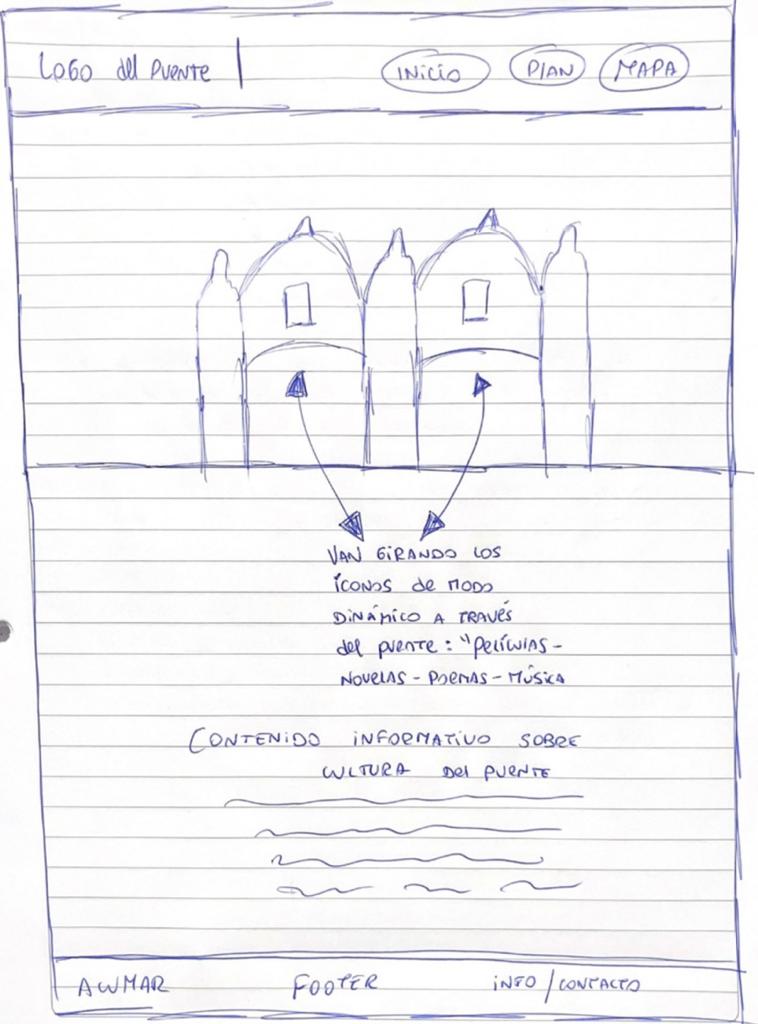 LOGO del PUENTE
INICIO PLAN MAPA
VAN GIRANDO LOS
ÍCONOS de MODO
DINÁMICO A TRAVÉS
del PUENTE: "PELÍCULAS -
NOVELAS - POEMAS - MÚSICA
CONTENIDO INFORMATIVO SOBRE
CULTURA Del PUENTE
FOOTER INFO / CONTACTO